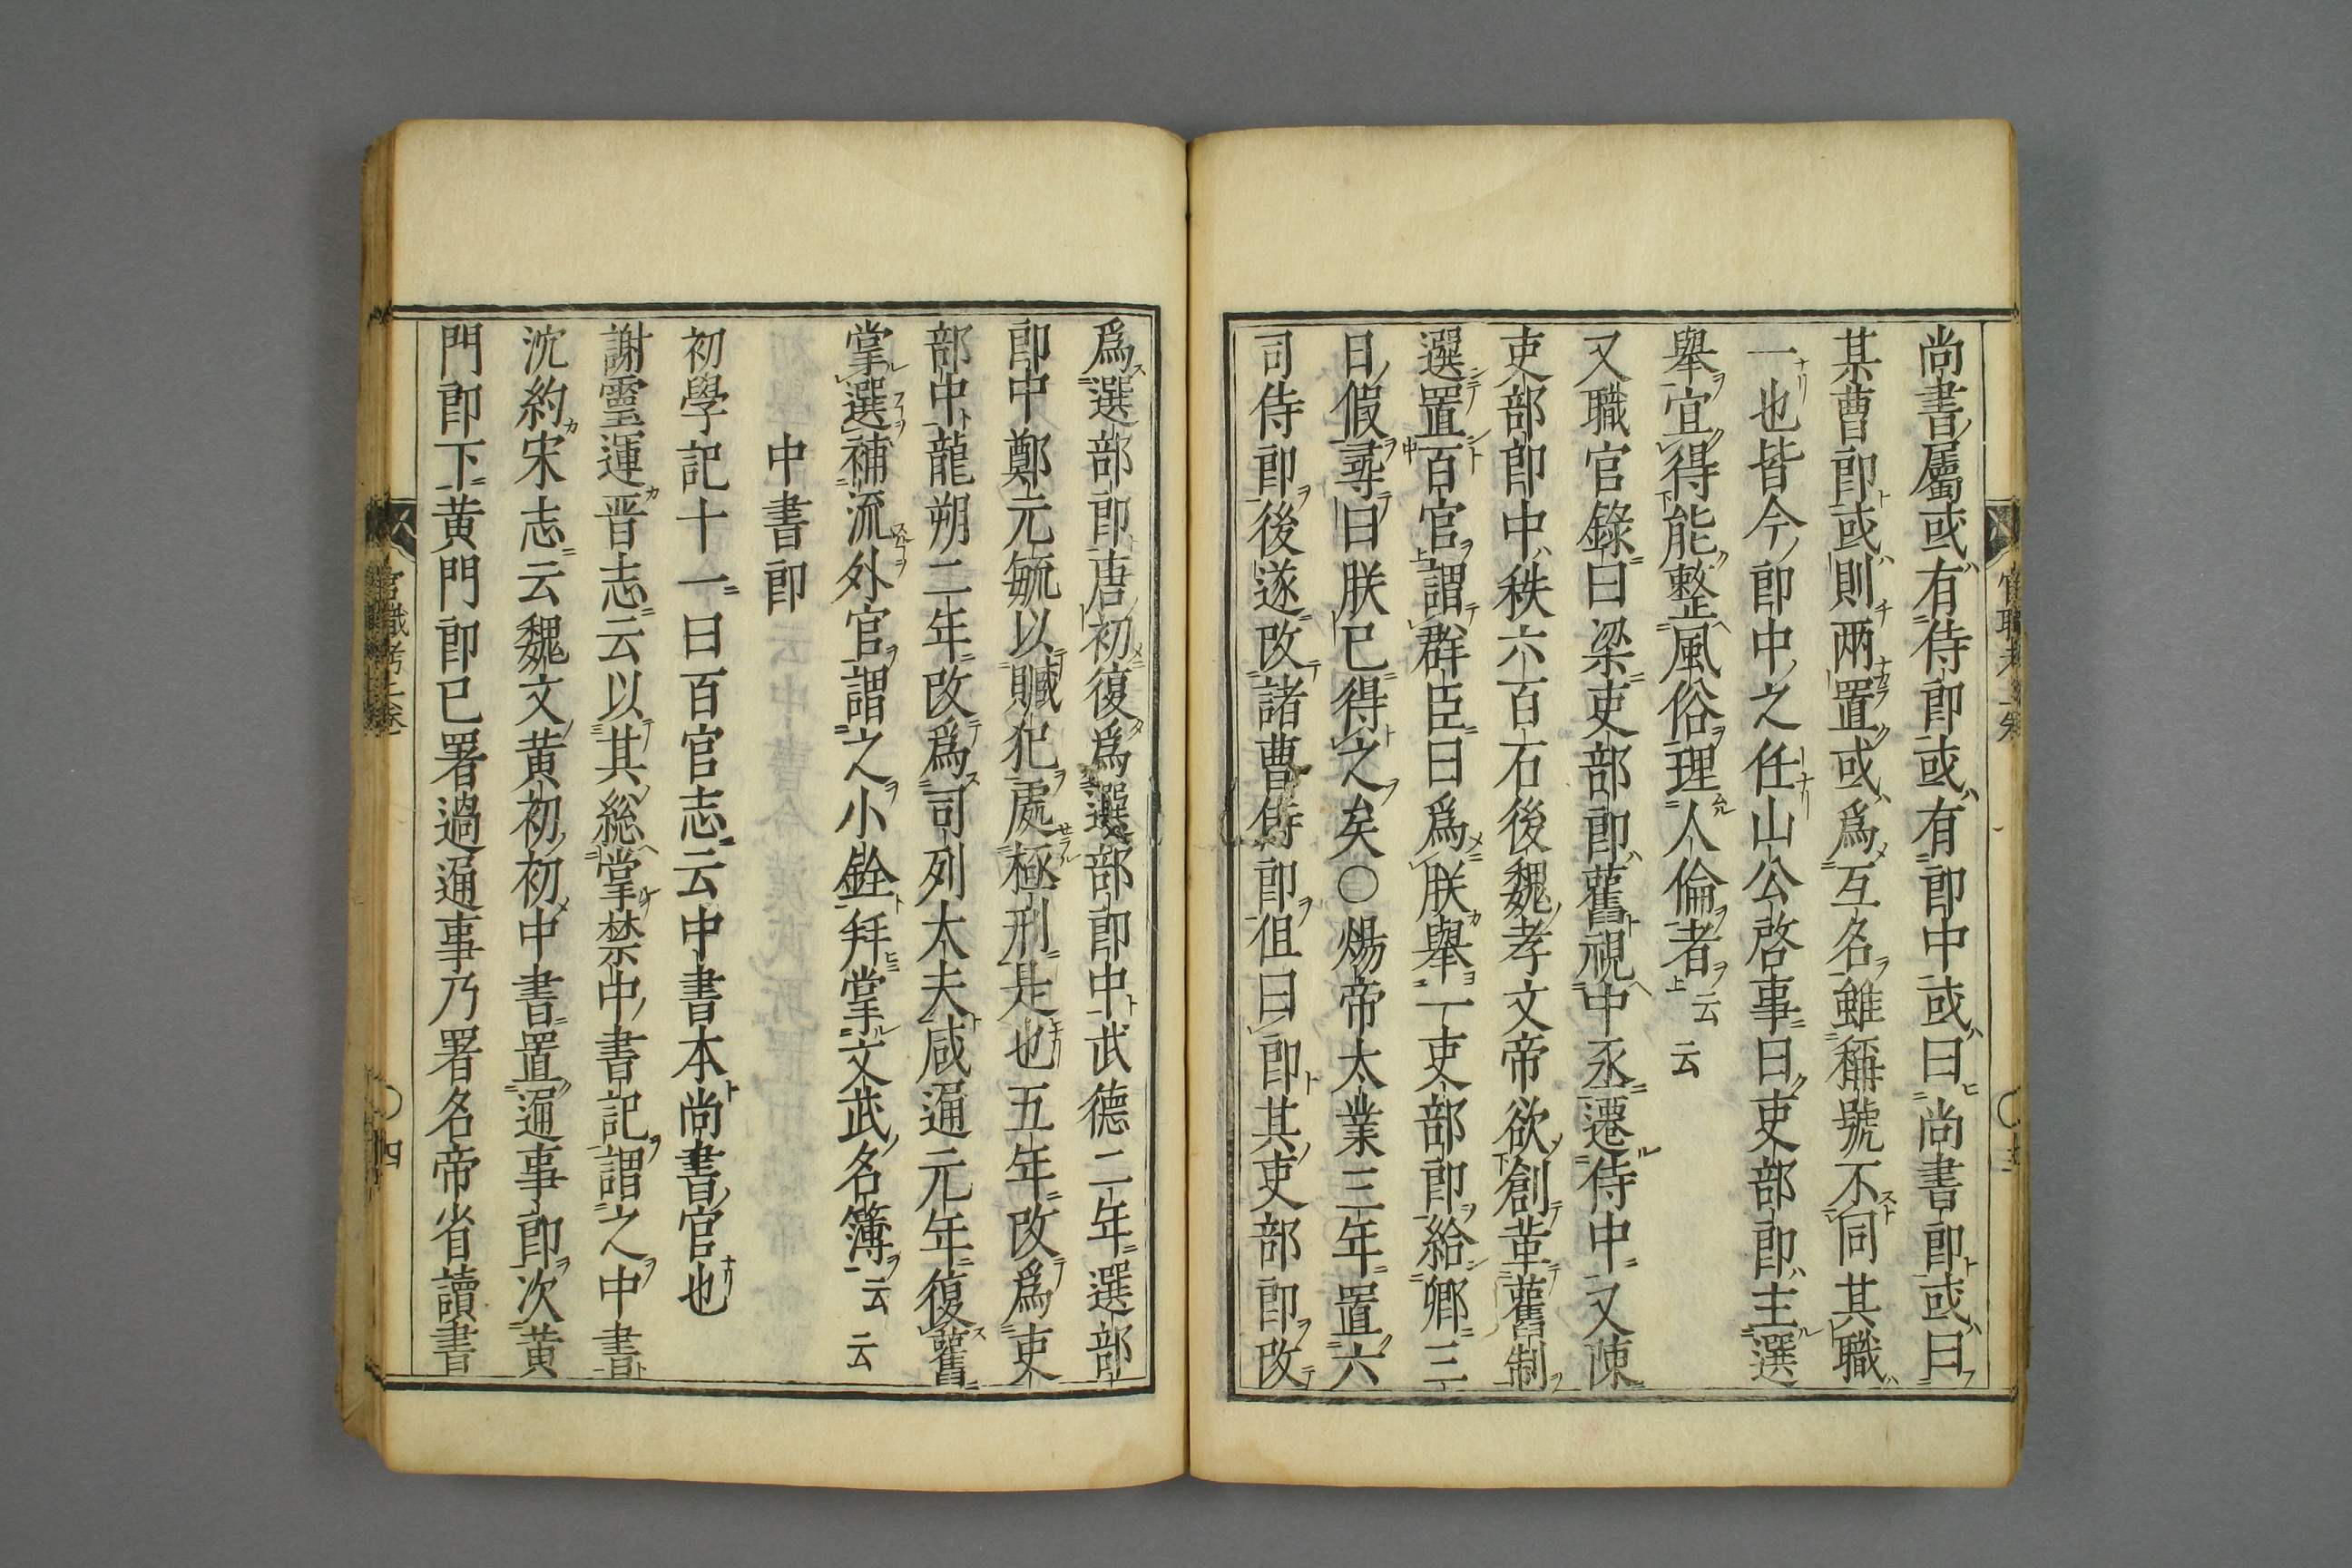 尚書屬或有侍郎或有郎中或曰尚書郎或曰
某曹郎或則兩置或爲互名雖稱號不同其職
一也皆今郎中之任山公啓事曰吏部郎主選
舉宜得能整風俗理人倫者云云
又職官錄曰梁吏部郎舊視中丞遷侍中又陳
吏部郎中秩六百石後魏孝文帝欲創革舊制
選置百官謂群臣曰爲朕舉一吏部郎給卿三
日假尋曰朕已得之矣○煬帝大業三年置六
司侍郎後遂改諸曹侍郎但曰郎其吏部郎改
爲選部郎唐初復爲選部郎中武德二年選部
郎中鄭元毓以贓犯處極刑是也五年改爲吏
部中龍朔二年改爲司列大夫咸通元年復舊
掌選補流外官謂之小銓拜掌文武名簿云云
中書郎
初學記十一曰百官志云中書本尚書官也
謝靈運晋志云以其総掌禁中書記謂之中書
沈約宋志云魏文黄初初中書置通事郎次黄
門郎下黄門郎已署過通事乃署名帝省讀書
官職考上卷
四